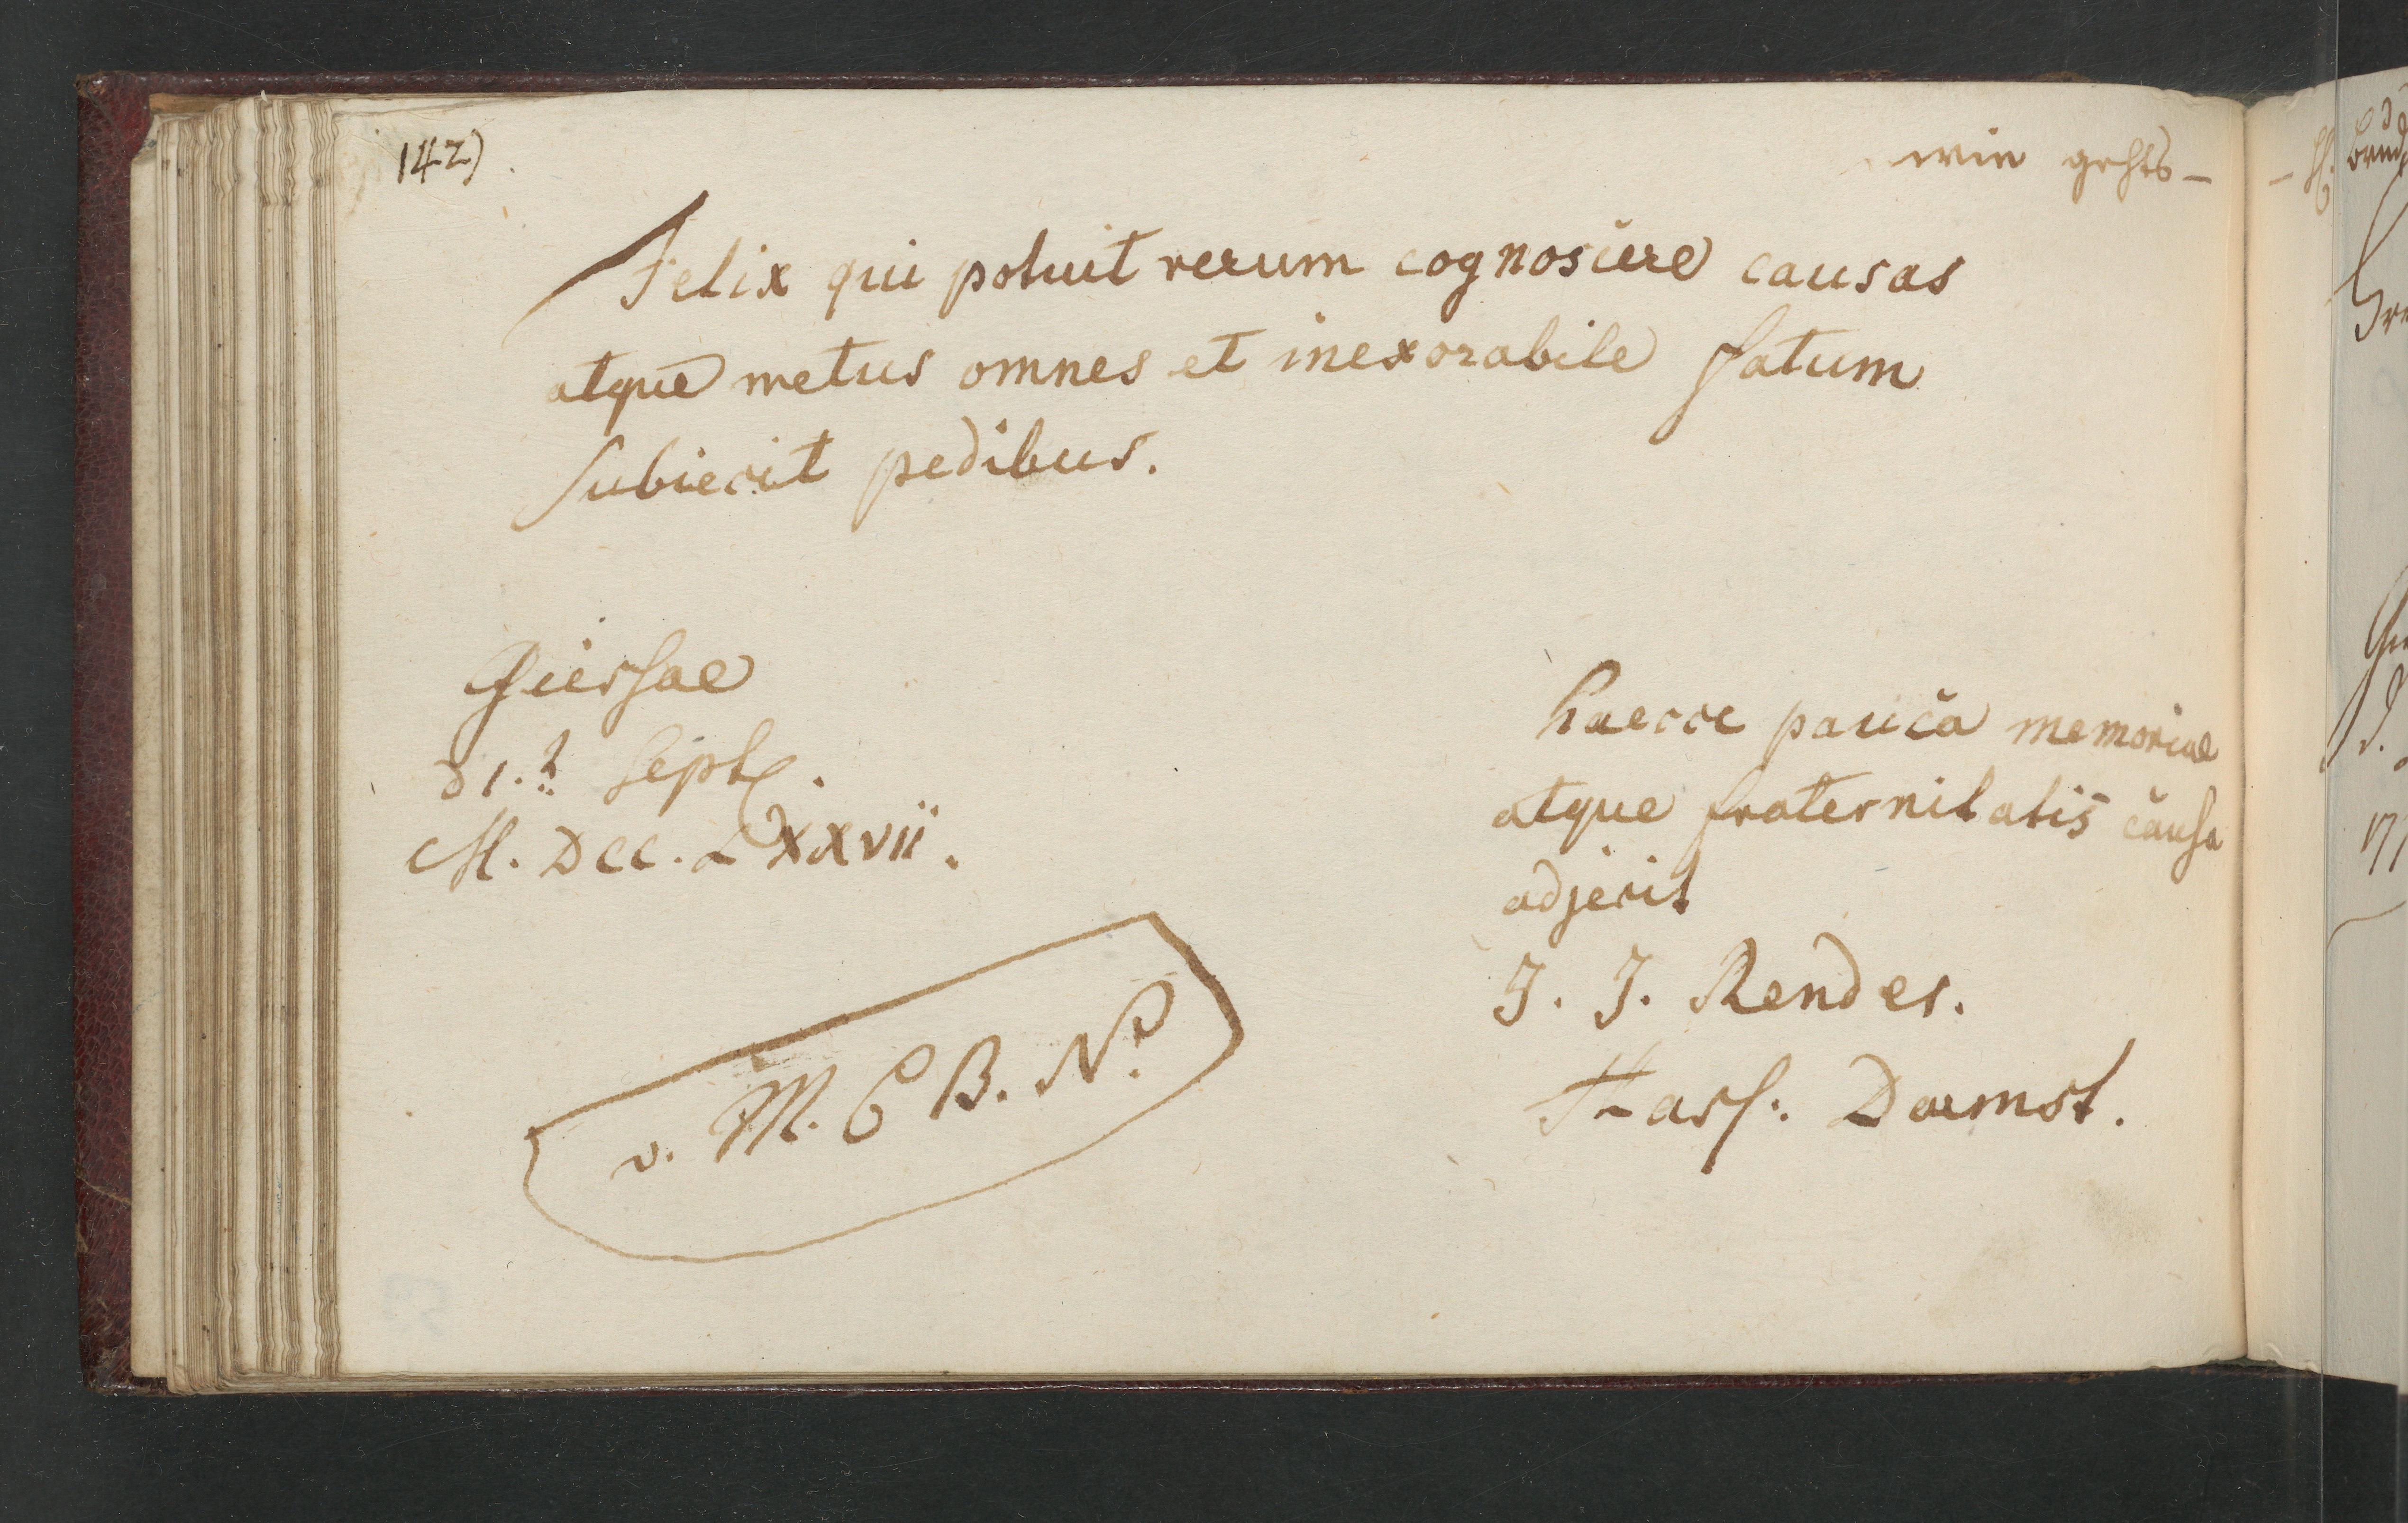 142)
wie gehts –
Felix qui potuit rerum cognoscere causas
atque metus omnes et inexorabile fatum
subiecit pedibus.
Giessae
Sept.
M. DCC. LXXVII.
haecce pauca memoriae
atque fraternitatis causa
adjecit
J. J. Render.
Hass: Darmst.
v. M. C B. N.